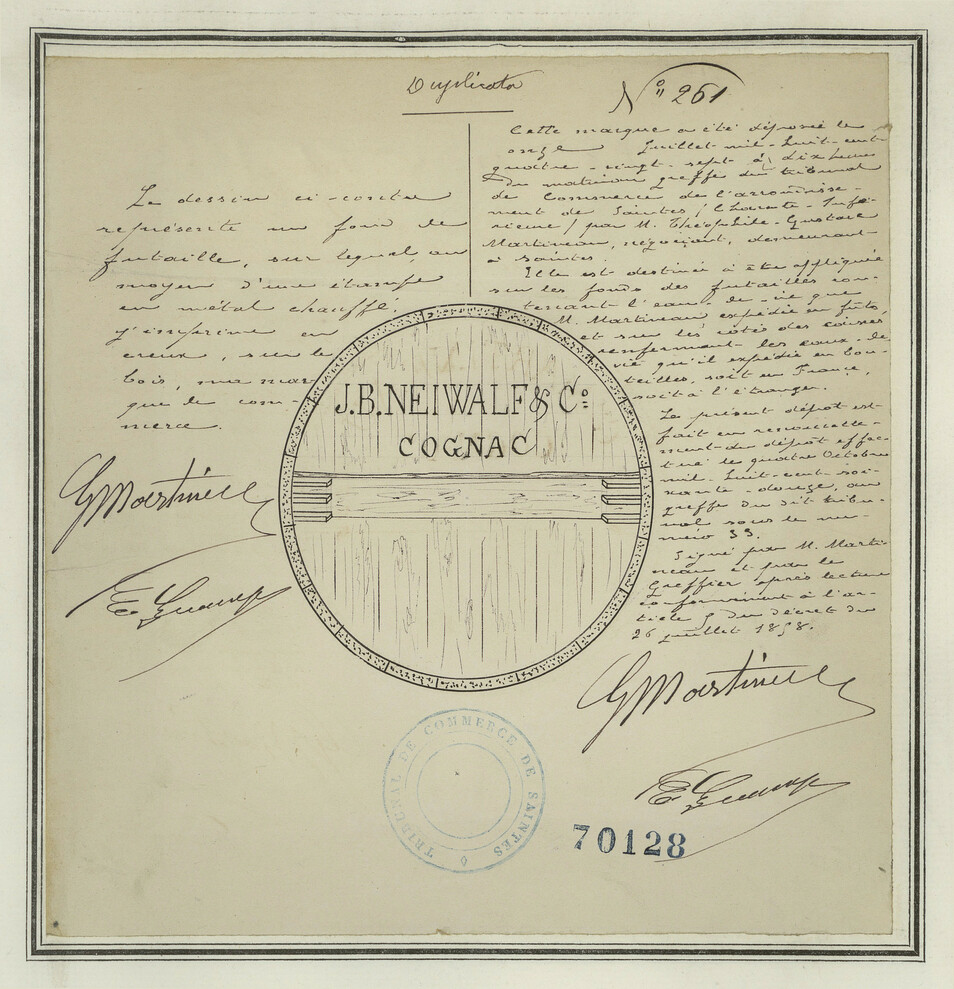 Duplicata
Nº 261
Le dessin ci-contre
représente un fond de
futaille, sur lequel, au
moyen d'une étampe
en métal chauffé,
j'imprime en
creux, sur le
bois, ma mar
que de com-
merce.
GMartineau
Cette marque a été déposée le
onze Juillet mil-huit-cent
quatre-vingt-sept à dix heures
du matin au greffe du tribunal
de Commerce de l'arrondisse-
ment de Saintes (Charente-Infé-
rieure) par M. Théophile-Gustave
Martineau, négociant, demeurant
à Saintes.
Elle est destinée à être appliquée
sur les fonds des futailles con-
tenant l'eau-de-vie que
M. Martineau expédie en fûts,
et sur les côtés des caisses
renfermant les eaux-de
vie qu'il expédie en bou-
teilles, soit en France,
soit à l'étranger.
Le présent dépôt est
fait en renouvelle-
ment du dépôt effec-
tué le quatre Octobre
mil-huit-cent-soi-
xante-douze, au
greffe du dit tribu-
nal sous le nu-
méro 33.
Signé par M. Marti-
neau et par le
Greffier après lecture
conformément à l'ar-
ticle 5 du décret du
26 juillet 1858.
GMartineau
J.B.NEIWALF & Cº
COGNAC
TRIBUNAL DE COMMERCE DE SAINTES
70128